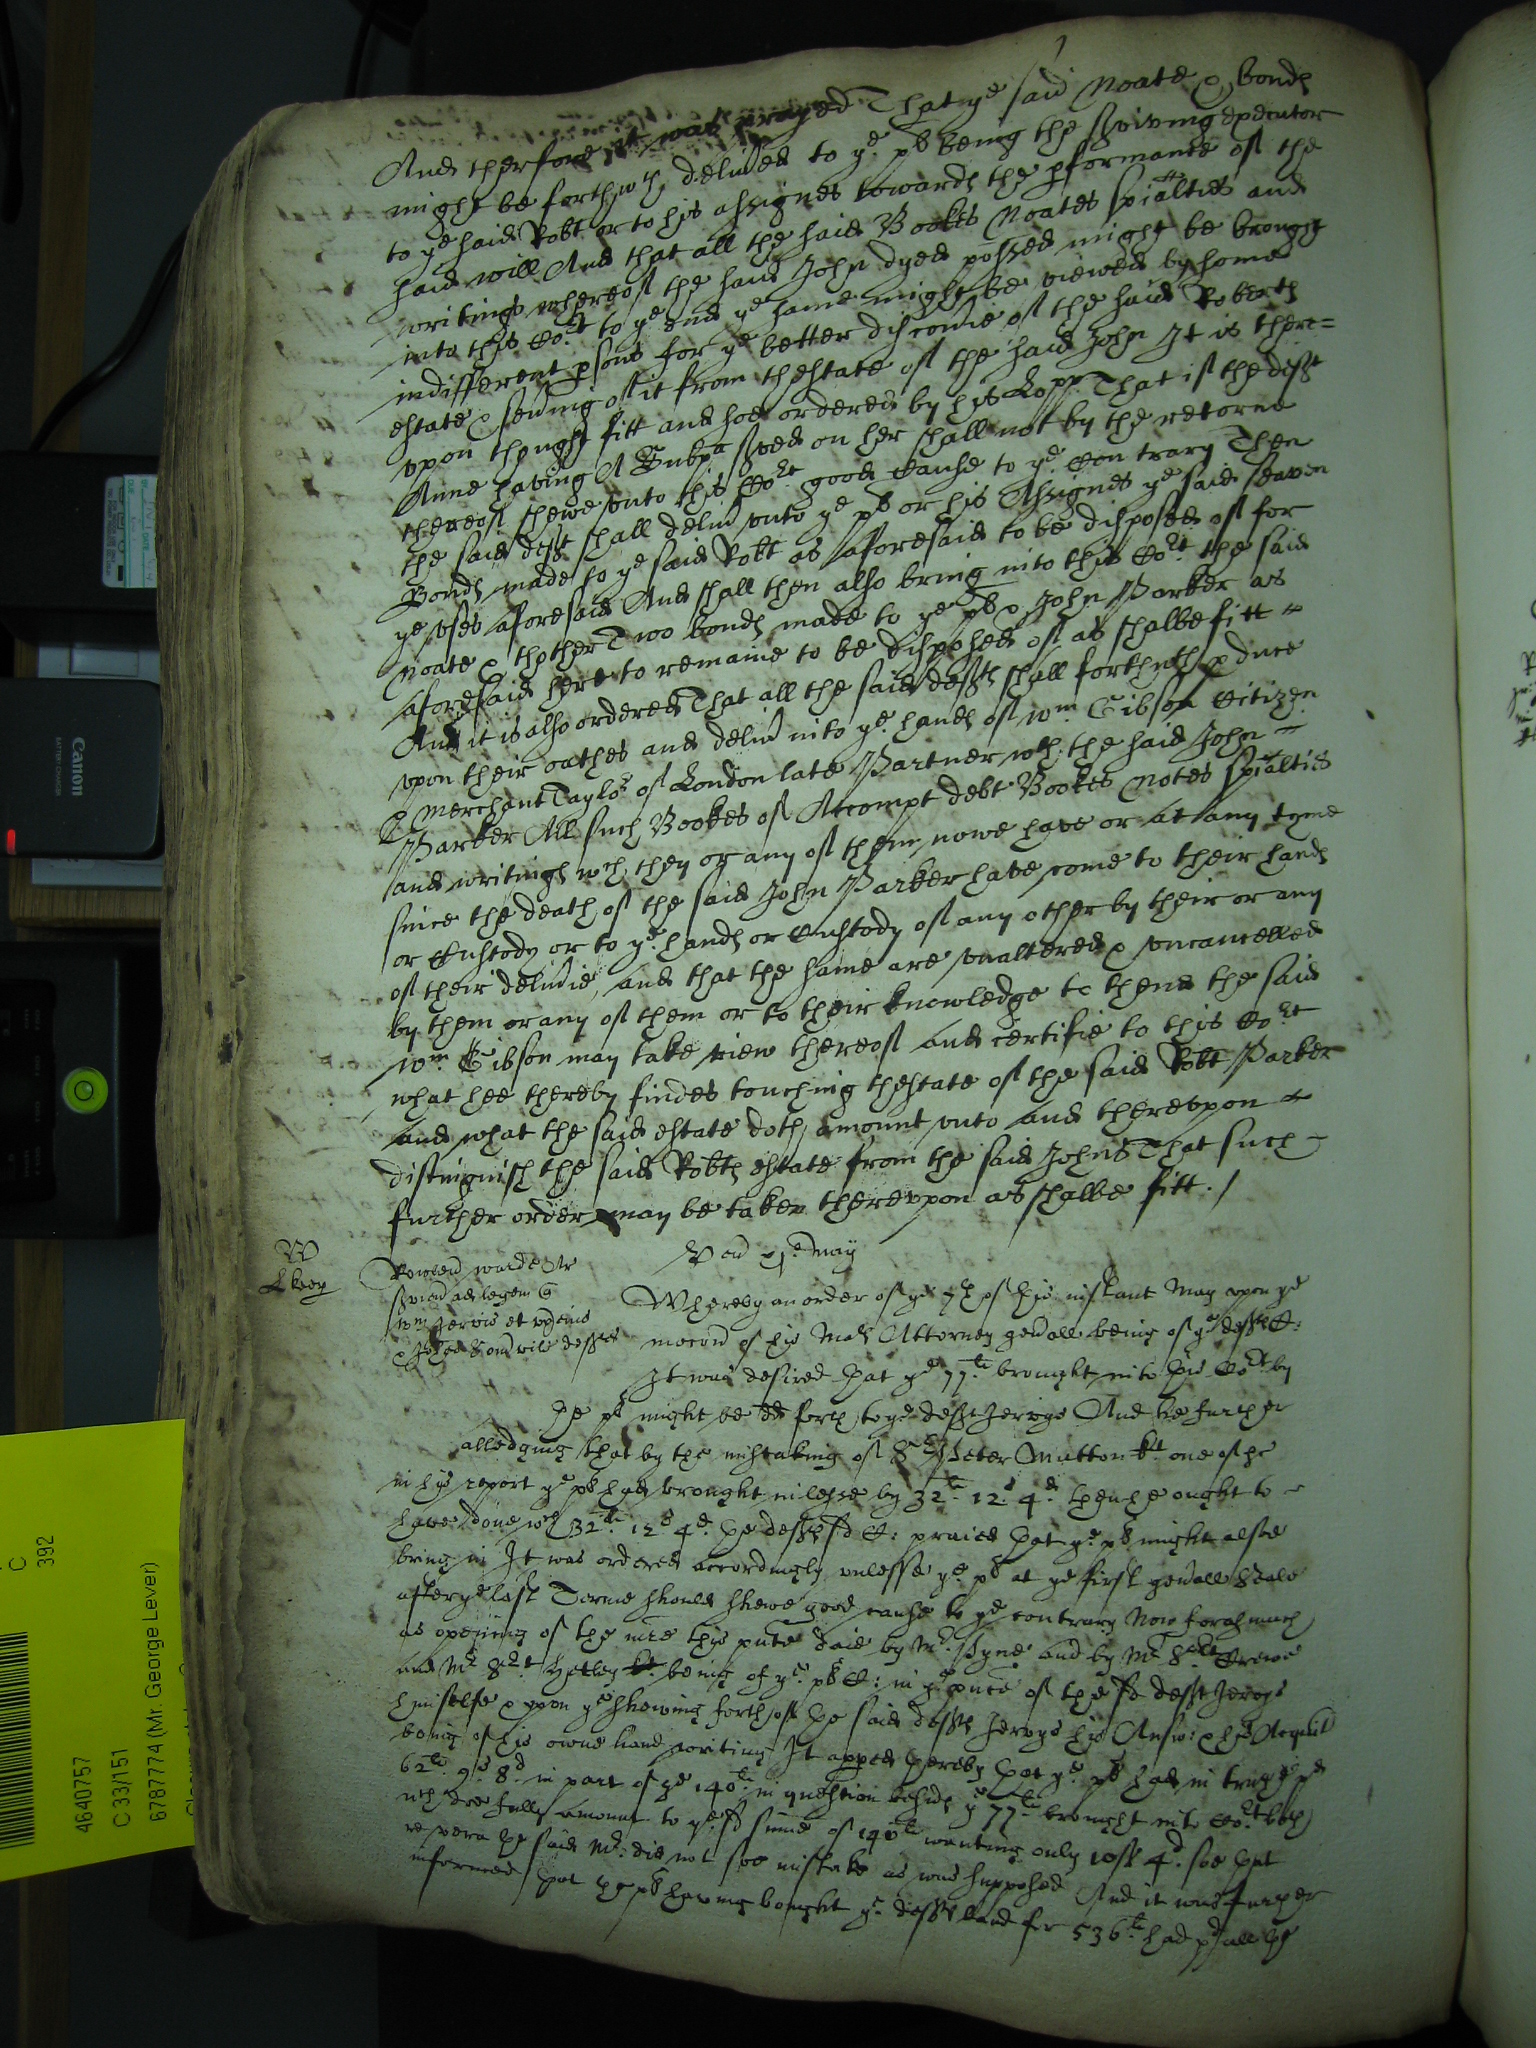 And therfore it was prayed That ye said Noate & bonds
might be forthwth delivered to ye plt being the surviving executor
to ye said Robt or to his assignes towards the pformance of the
said will And that all the said Bookes Noates spialties and
writings whereof the said John dyed possed might be brought
into this Cort to ye end ye same might be viewed by some
indifferent psons for ye better discovie of the said Roberts
estate & sevring of it from thestate of the said John It is there=
upon thought fitt and soe ordered by his Lopp That if the deft
Anne having A Subpa served on her shall not by the retorne
thereof shewe unto this Cort good cause to ye Contrary Then
the said deft shall deliv unto ye plt or his Assignes ye said seaven
Bonds made to ye said Robt as aforesaid to be disposed of for
ye uses aforesaid And shall then also bring into this Cort the said
Noate & thother Two bonds made to ye plt & John Parker as
aforesaid here to remaine to be disposed of as shalbe fitt
And it is also ordered That all the said defts shall forthwth pduce
upon their oathes and deliv into ye hands of Wm Gibson Citizen
& Merchant Taylor of London late Partner wth the said John
Parker All such Bookes of Accompt debt Bookes Notes spialties
and writings wch they or any of them nowe have or at any tyme
since the death of the said John Parker have come to their hands
or Custody or to ye hands or Custody of any other by their or any
of their delivie, and that the same are unaltered & uncancelled
by them or any of them or to their knowledge to thend the said
Wm Gibson may take view thereof and certifie to this Cort
what hee thereby findes touching thestate of the said Robt Parker
and what the said estate doth amount unto and thereupon
distinguish the said Robts estate from the said Johns That such
further order may be taken thereupon as shalbe fitt. /
May
Whereby an order of ye 7th of this instant May upon ye
mocon of his Mats Attorney genall being of ye defts C:
Wm Jervis et
It was desired that ye 77li brought into this Cort by
the plt might be forth to ye deft Jervys And he further
alledging that by the mistaking of Sr Peter Mutton kt one of the
in his report ye plt had brought in lesse by 32li 12s 4d then he ought to
have done wch 32li 12s 4d the defts sd C: praied that ye plt might alsoe
bring in It was ordered accordingly unlesse ye plt at ye first genall Seale
after ye last Terme should shewe good cause to ye contrary Now forasmuch
as opening of the mre this pnte daie by Mr Pyne and by Mr Srt Crewe
and Mr Srt Hetley being of ye plts C: in ye pnce of the sd deft Jervys
himselfe & upon ye shewing forth of the said defts Jervys his Answ: & his Acquit
being of his owne hand writing It appeed thereby that ye plt had in truth pd
62li 9s 8d in part of ye 140li in question besids ye 77li brought into Cort both
wch doe fully amount to ye sd sume of 140li wanting only 10s 4d soe that
re vera the said Mr: did not soe mistake as was supposed And it was further
informed that the plt having bought ye defts land for 536li had pd all the
Canon
BATTERY CHARGER
C
392
4640757
C 33/151
6787774 (Mr. George Lever)